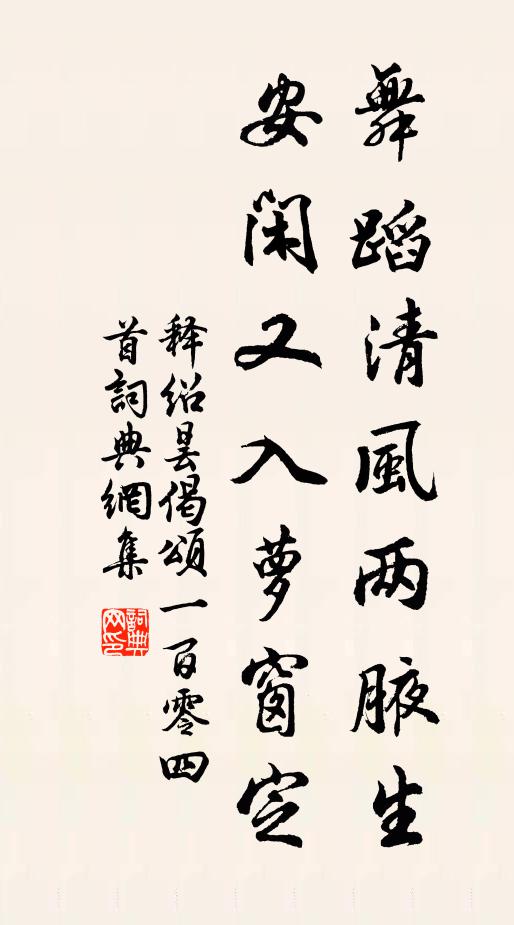 舞蹈清風两腋生
安閑又入夢窗定
释紹曇偈頌一百零四
首詞典網集
詞典网印